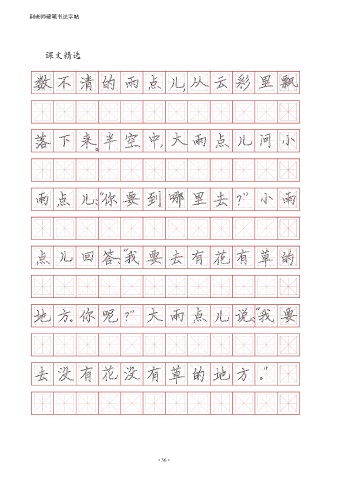 副老师硬笔书法字帖
课文精选
数不清的雨点儿,从云彩里飘
落下来。半空中,大雨点儿问小
雨点儿:“你要到哪里去?”小雨
点儿回答:“我要去有花有草的
地方。你呢?”大雨点儿说:“我要
去没有花没有草的地方。”
·36·